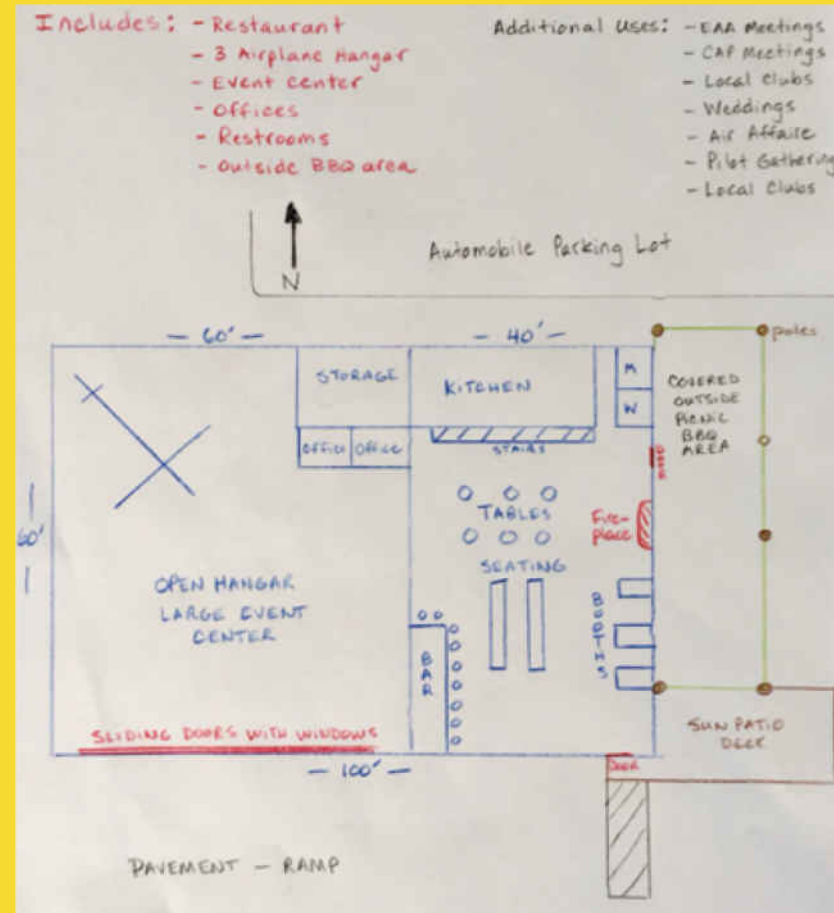 Includes: - Restaurant
- 3 Airplane Hangar
- Event Center
- Offices
- Restrooms
- Outside BBQ area
Additional Uses: - EAA Meetings
- CAP Meetings
- Local Clubs
- Weddings
- Air Affaire
- Pilot Gathering
- Local Clubs
N
Automobile Parking Lot
- 60' -
- 40' -
poles
STORAGE
KITCHEN
M
W
COVERED
OUTSIDE
PICNIC
BBQ
AREA
OFFICE
OFFICE
STAIRS
DOOR
TABLES
Fire-
place
SEATING
60'
OPEN HANGAR
LARGE EVENT
CENTER
BOOTHS
BAR
SLIDING DOORS WITH WINDOWS
SUN PATIO
DECK
DOOR
- 100' -
PAVEMENT - RAMP